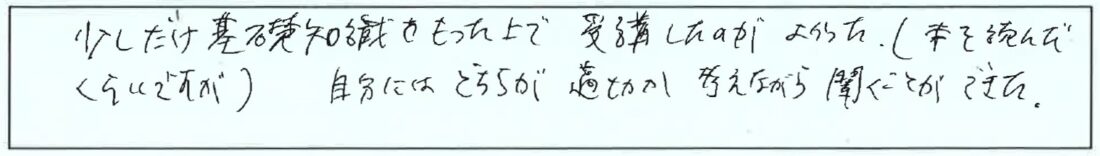 少しだけ基礎知識をもった上で 受講したのがよかった.(本を読んだ
くらいですが) 自分にはどちらが適切か 考えながら聞くことができた.